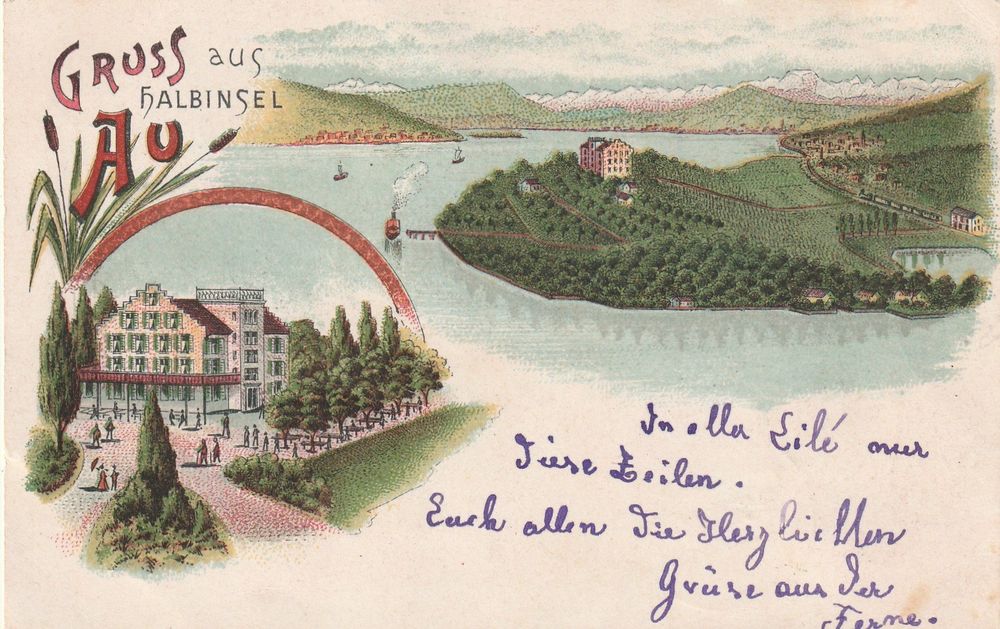 GRUSS aus
HALBINSEL
AU
In aller Eilé nur
diese Zeilen.
Euch allen die Herzlichten
Grüse aus der
Ferne.